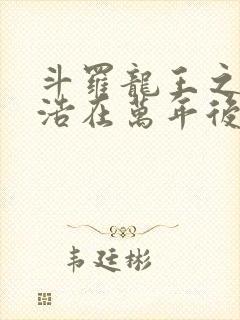 斗羅龍王之
浩在萬年後
韦廷彬